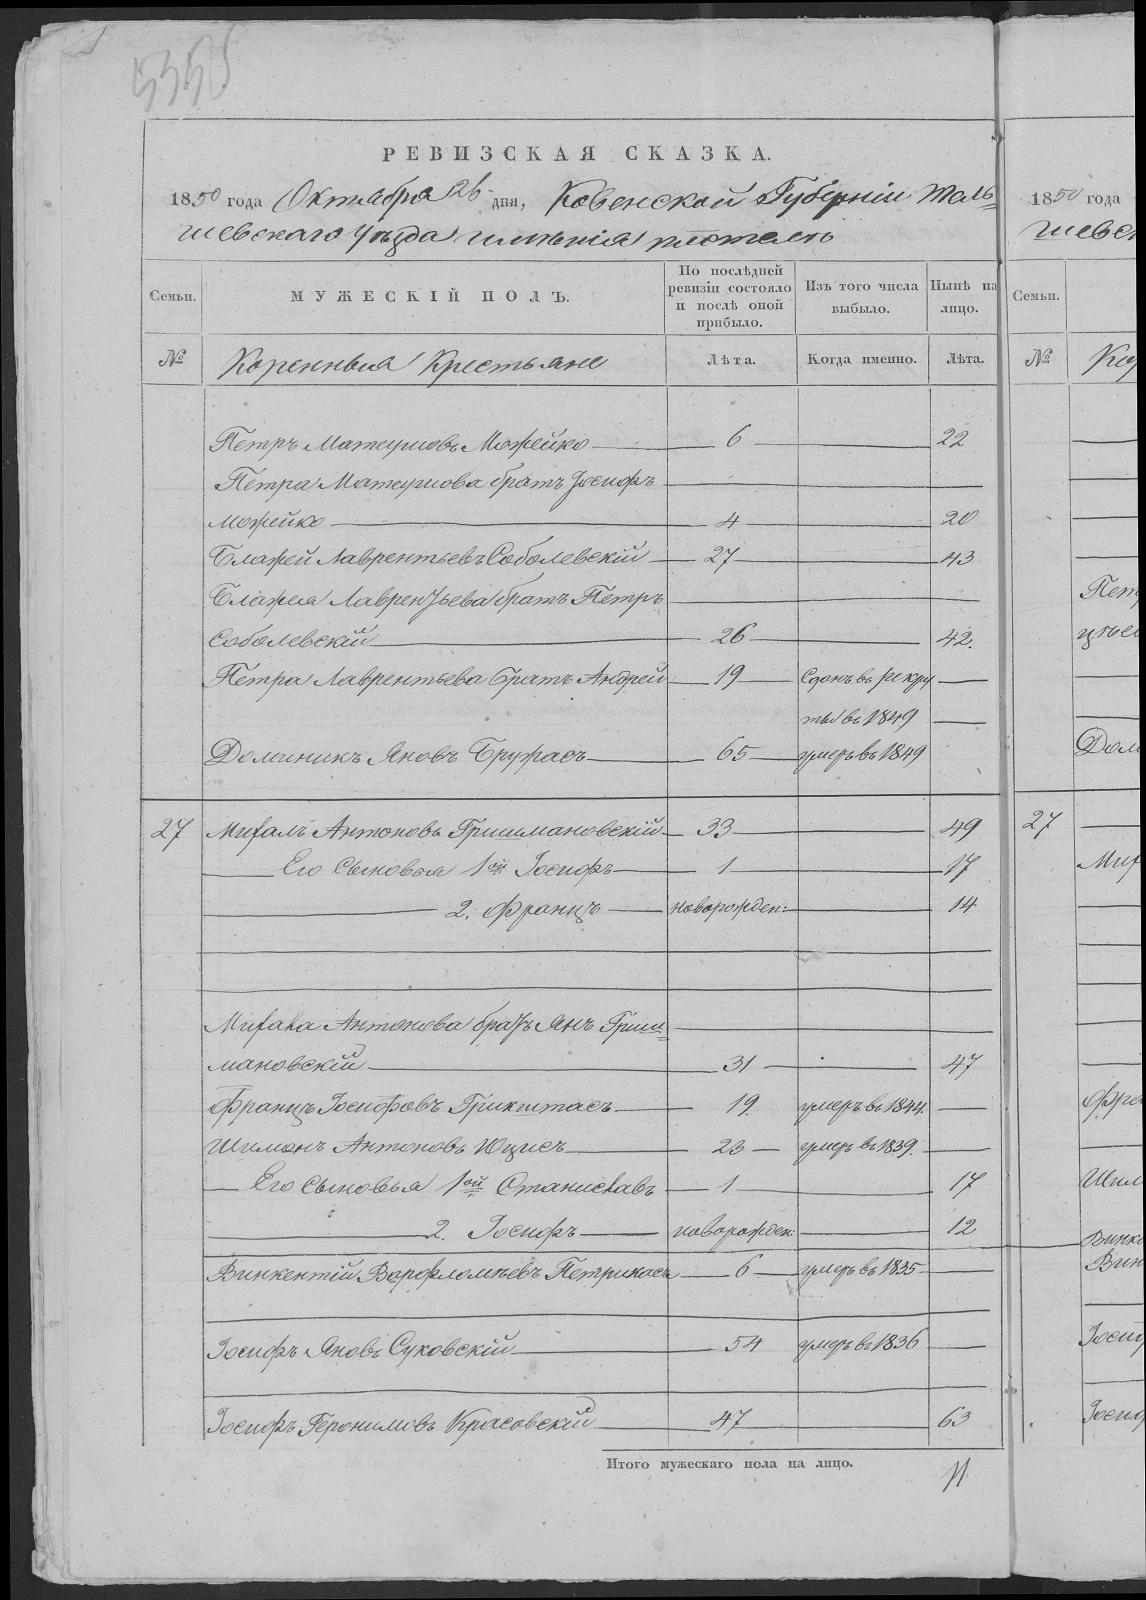 5355
РЕВИЗСКАЯ СКАЗКА.
1850 года Октября 26 дня, Ковенской Губерніи Тель=
шевскаго уѣзда имѣнія
Семьи. МУЖЕСКІЙ ПОЛЪ. По послѣдней ревизіи состояло и послѣ оной прибыло. Изъ того числа выбыло. Нынѣ на лицо.
№ Коренныя Крестьяне Лѣта. Когда именно. Лѣта.
Петръ Матеушовъ Можейко 6 22
Петра Матеушова братъ Іосифъ
Можейко 4 20
Блажей Лаврентьевъ Соболевскій 27 43
Блажея Лаврентьева братъ Петръ
Соболевскій 26 42.
Петра Лаврентьева братъ Андрей 19 Сданъ въ рекру
ты въ 1849
Доминикъ Яновъ Бружасъ 65 умеръ въ 1849
27 Михалъ Антоновъ Гришмановскій 33 49
Его Сыновья 1ой Іосифъ 1 17
2. Францъ новорожден: 14
Михала Антонова братъ Янъ Гриш=
мановскій 31 47
Францъ Іосифовъ Грикштасъ 19. умеръ въ 1844.
Шимонъ Антоновъ Юцисъ 23 умеръ въ 1839.
Его Сыновья 1ой Станиславъ 1 17
2. Іосифъ новорожден: 12
Винкентій Варфломѣевъ Петрикасъ 6 умеръ въ 1835
Іосифъ Яновъ Суковскій 54 умеръ въ 1836
Іосифъ Геронимовъ Красовскій 47 63
Итого мужескаго пола на лицо. 11
1850 года
шевск
Семьи.
№ Кор
Петр
Дом
27
Мих
Фра
Шим
Винк
Вин
Іоси
Іосиф